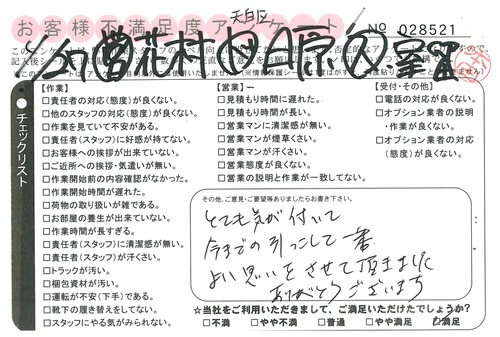 お客様不満足度アンケート
No 028521
チェックリスト
【作業】
□責任者の対応(態度)が良くない。
□他のスタッフの対応(態度)が良くない。
□作業を見ていて不安がある。
□責任者(スタッフ)に好感が持てない。
□お客様への挨拶が出来ていない。
□ご近所への挨拶・気遣いが無い。
□作業開始前の内容確認がなかった。
□作業開始時間が遅れた。
□荷物の取り扱いが雑である。
□お部屋の養生が出来ていない。
□作業時間が長すぎる。
□責任者(スタッフ)に清潔感が無い。
□責任者(スタッフ)が汗くさい。
□トラックが汚い。
□梱包資材が汚い。
□運転が不安(下手)である。
□靴下の履き替えをしてない。
□スタッフにやる気がみられない。
【営業】
□見積もり時間に遅れた。
□見積もり時間が長い。
□営業マンに清潔感が無い。
□営業マンが煙草くさい。
□営業マンが汗くさい。
□営業態度が良くない。
□営業の説明と作業が一致してない。
【受付・その他】
□電話の対応が良くない。
□オプション業者の説明
・作業が良くない。
□オプション業者の対応
(態度)が良くない。
その他、ご意見・ご要望等ありましたらお書き下さい。
とても気が付いて
今までの引っこしで一番
よい思いをさせて頂きました
ありがとうございます
☆当社をご利用いただきまして、ご満足いただけたでしょうか?
□不満 □やや不満 □普通 □やや満足 □満足